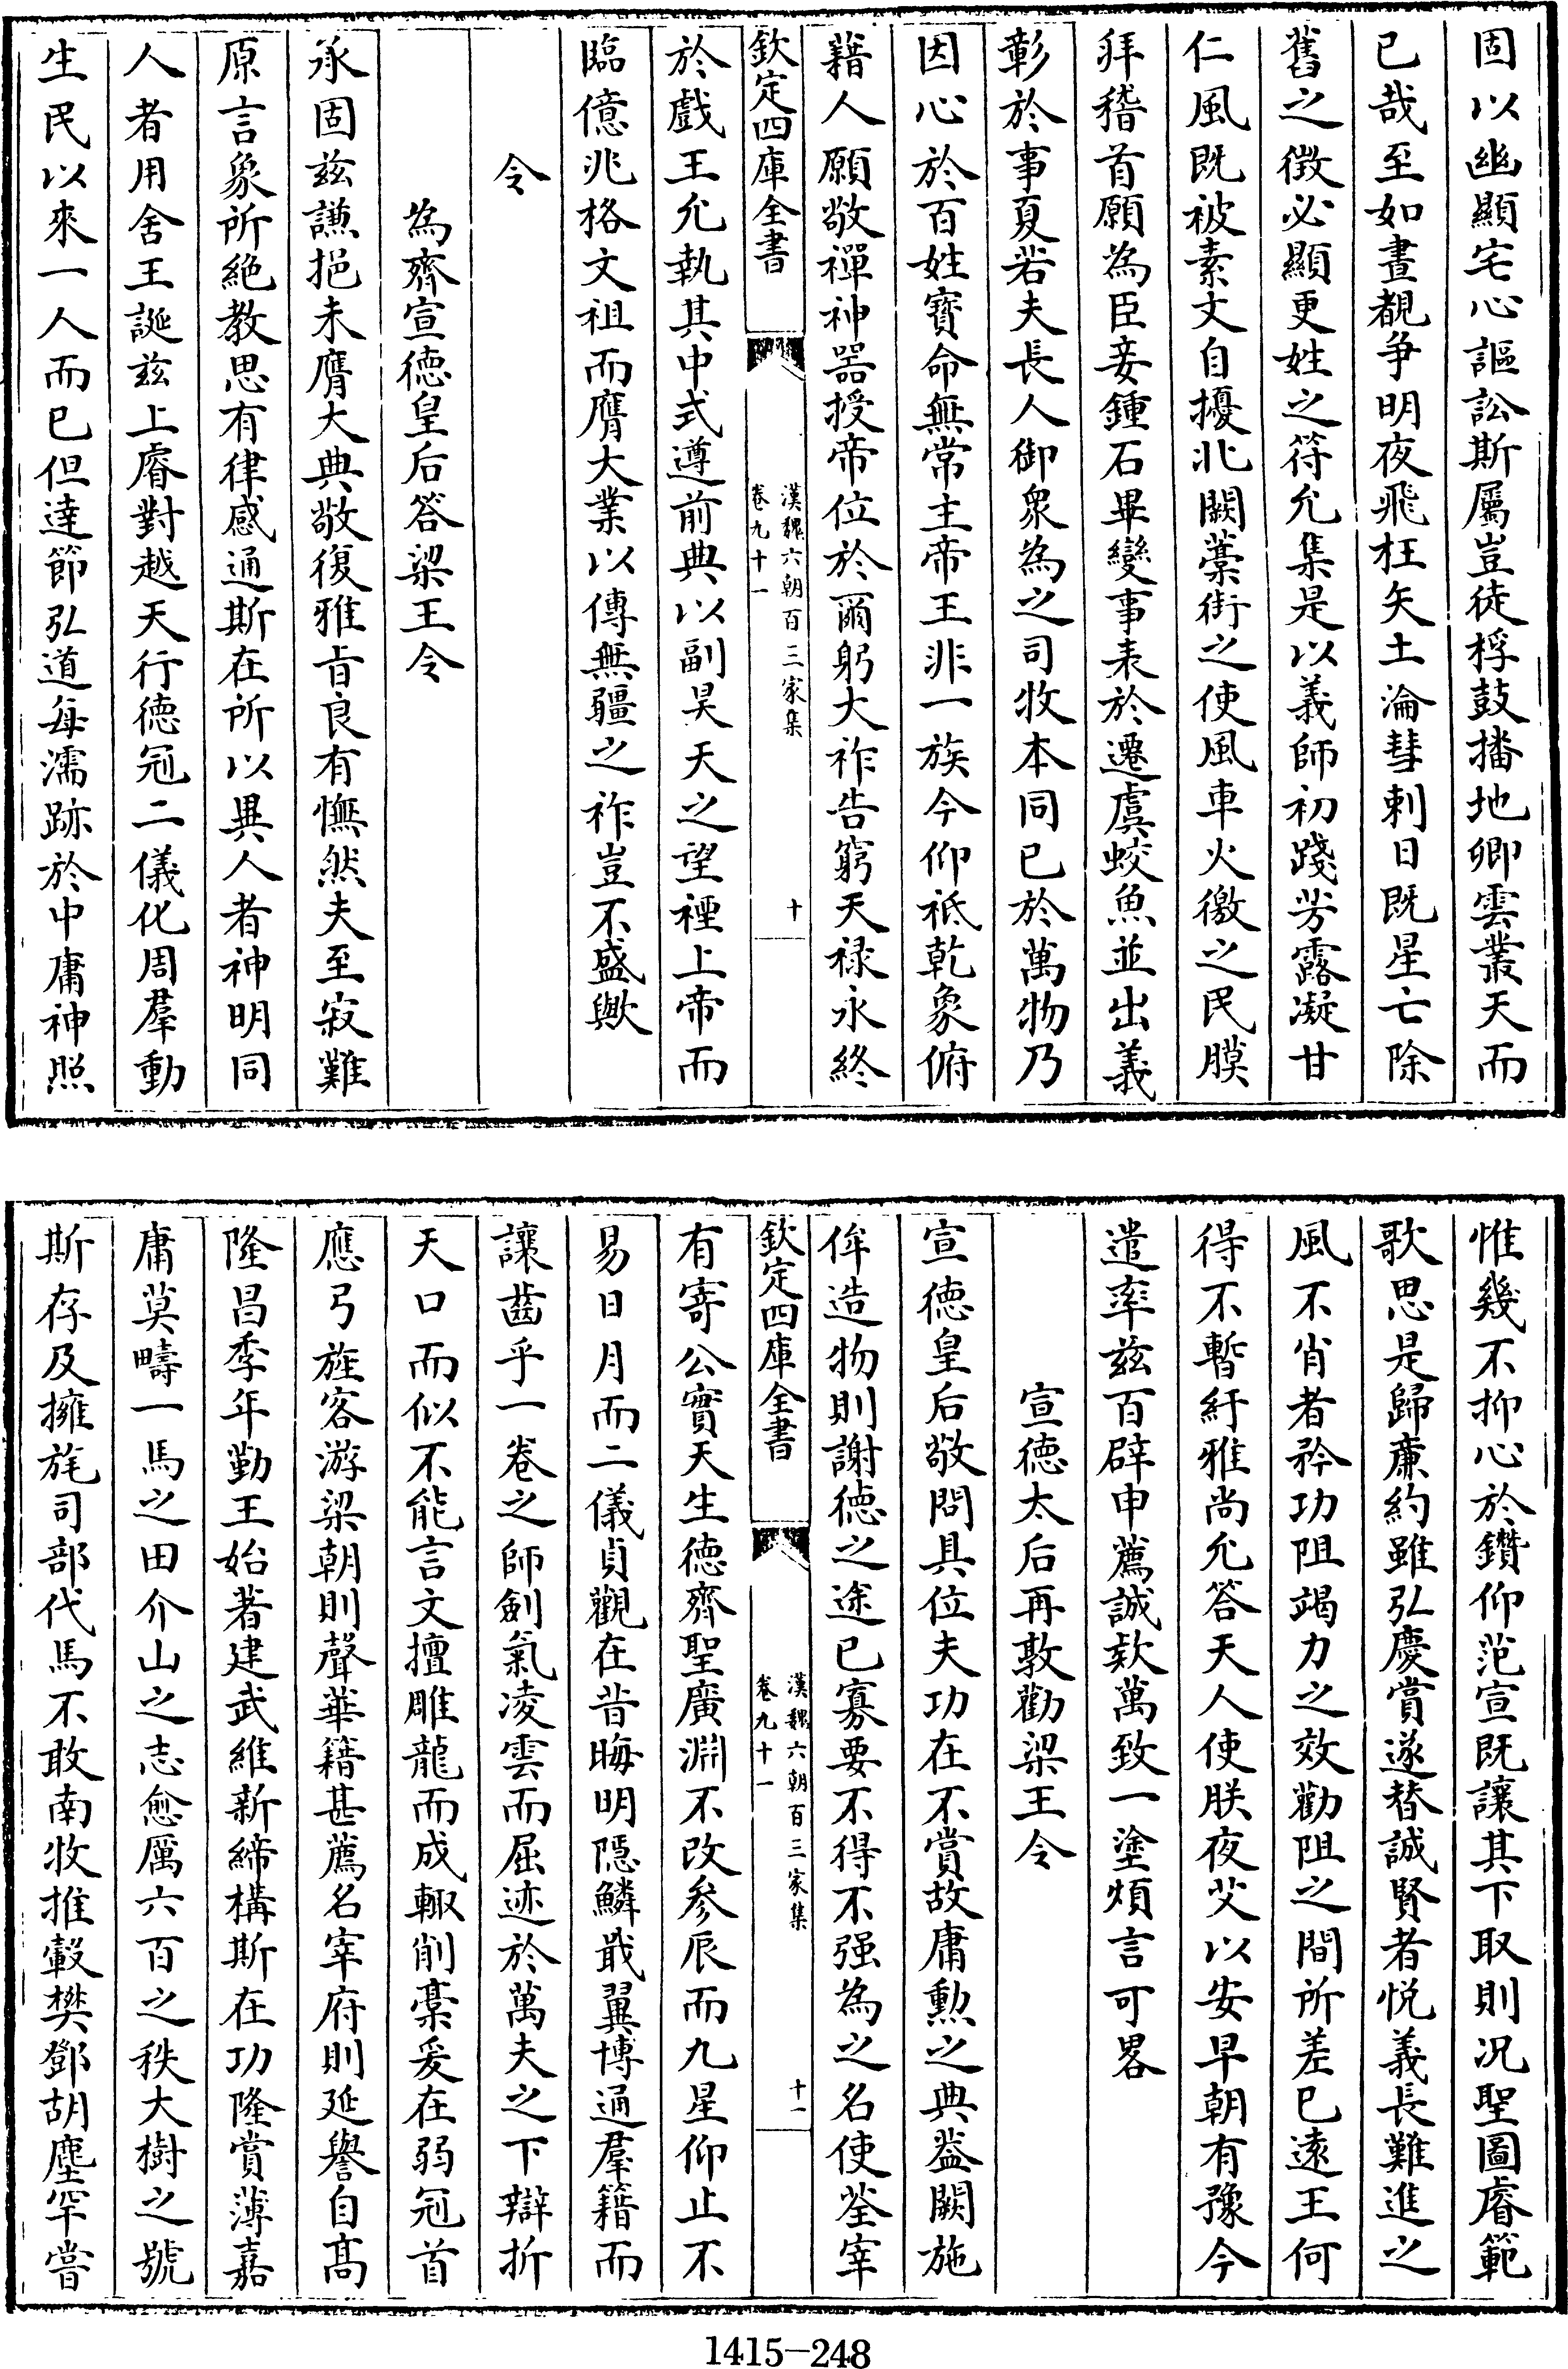 固以幽顯宅心謳訟斯屬豈徒桴鼓播地卿雲叢天而
已哉至如晝覩爭明夜飛枉矢土淪彗刺日既星亡除
舊之徵必顯更姓之符允集是以義師初踐芳露凝甘
仁風既被素文自擾北闕藁街之使風車火徼之民膜
拜稽首願為臣妾鍾石畢變事表於遷虞蛟魚並出義
彰於事夏若夫長人御衆為之司牧本同已於萬物乃
因心於百姓寶命無常主帝王非一族今仰祗乾象俯
藉人願敬禪神器授帝位於爾躬大祚告窮天祿永終
欽定四庫全書
漢魏六朝百三家集
卷九十一
十
於戲王允執其中式遵前典以副昊天之望禋上帝而
臨億兆格文祖而膺大業以傳無疆之祚豈不盛歟
令
為齊宣德皇后答梁王令
承固茲謙挹未膺大典敬復雅旨良有憮然夫至寂難
原言象所絶教思有律感通斯在所以異人者神明同
人者用舍王誕茲上睿對越天行德冠二儀化周羣動
生民以來一人而已但達節弘道每濡跡於中庸神照
惟幾不抑心於鑽仰范宣既讓其下取則況聖圖睿範
歌思是歸廉約雖弘慶賞遂替誠賢者悦義長難進之
風不肖者矜功阻竭力之效勸阻之間所差已遠王何
得不暫紆雅尚允答天人使朕夜艾以安早朝有豫今
遣率茲百辟申薦誠欵萬致一塗煩言可畧
宣德太后再敦勸梁王令
宣德皇后敬問具位夫功在不賞故庸勲之典葢闕施
侔造物則謝德之途已寡要不得不强為之名使荃宰
欽定四庫全書
漢魏六朝百三家集
卷九十一
十一
有寄公實天生德齊聖廣淵不改參辰而九星仰止不
易日月而二儀貞觀在昔晦明隱鱗戢翼博通羣籍而
讓齒乎一卷之師劍氣凌雲而屈迹於萬夫之下辯折
天口而似不能言文擅雕龍而成輙削藁爰在弱冠首
應弓旌客游梁朝則聲華籍甚薦名宰府則延譽自高
隆昌季年勤王始著建武維新締構斯在功隆賞薄嘉
庸莫疇一馬之田介山之志愈厲六百之秩大樹之號
斯存及擁旄司部代馬不敢南牧推轂樊鄧胡塵罕嘗
1415-248